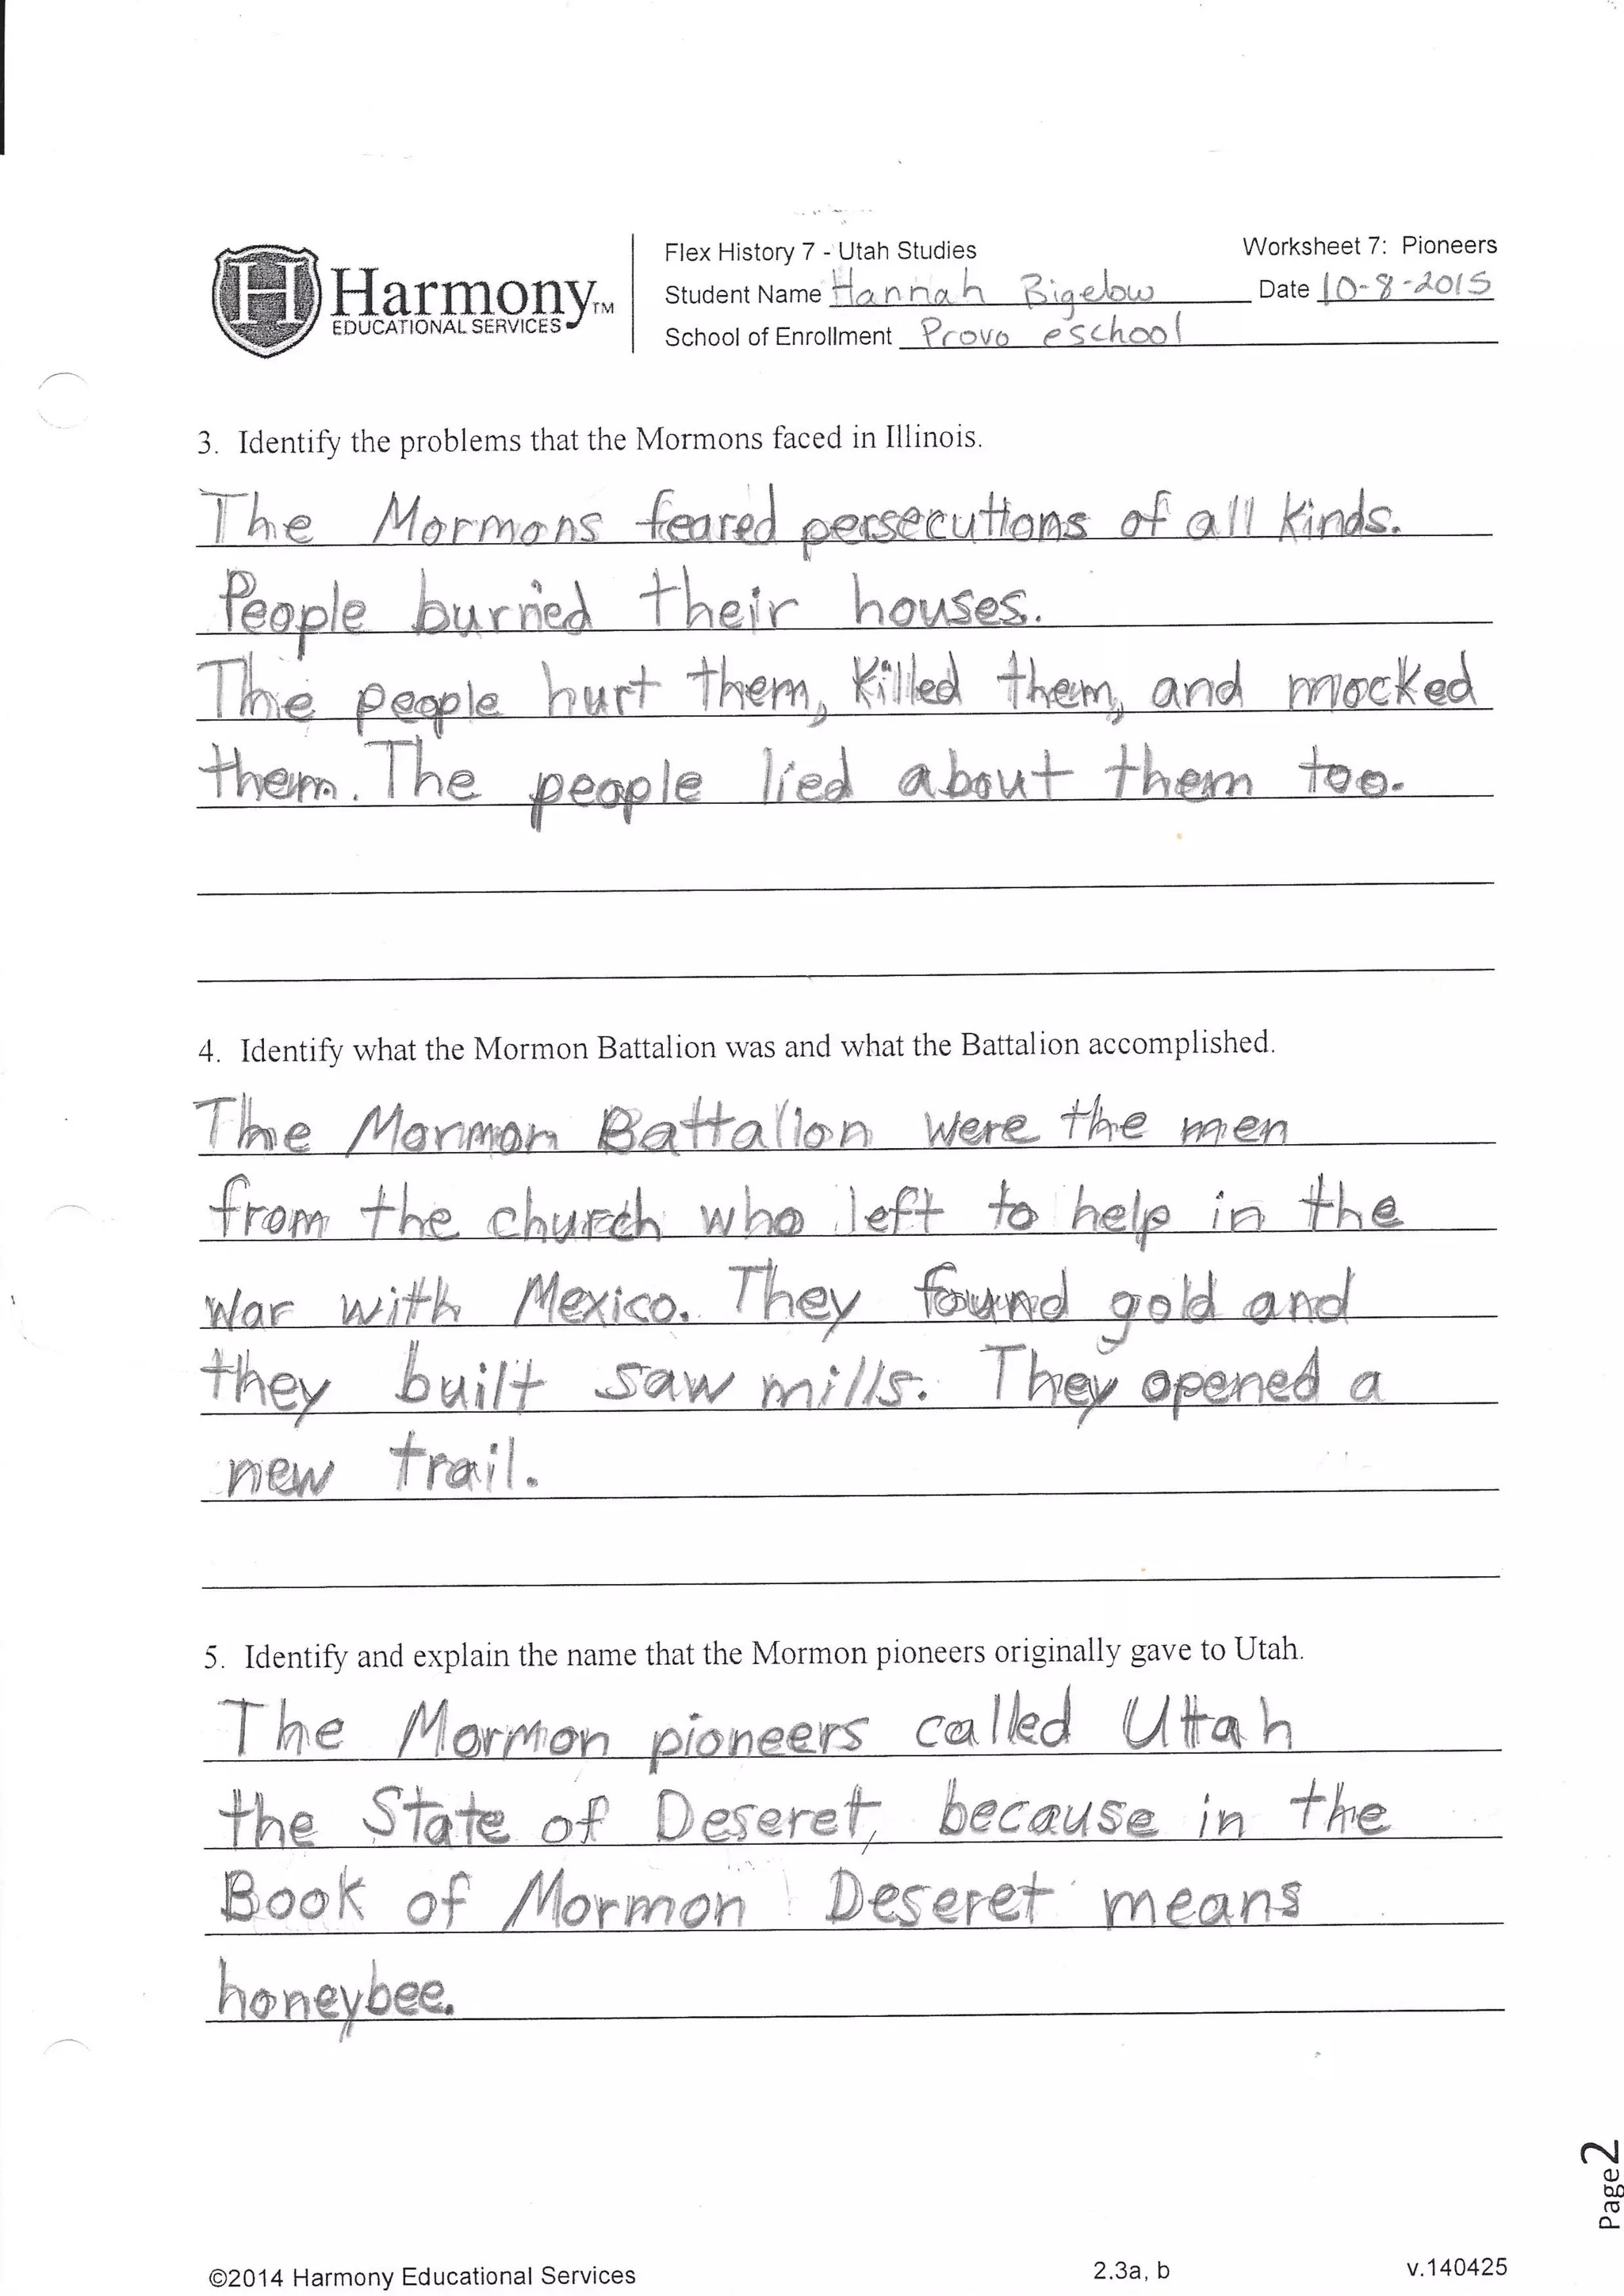 Harmony™
EDUCATIONAL SERVICES
Flex History 7 - Utah Studies
Worksheet 7: Pioneers
Student Name Hannah Bigelow Date 10-8-2015
School of Enrollment Provo eschool
3. Identify the problems that the Mormons faced in Illinois.
The Mormons feared persecutions of all kinds.
People burned their houses.
The people hurt them, killed them, and mocked
them. The people lied about them too.
4. Identify what the Mormon Battalion was and what the Battalion accomplished.
The Mormon Battalion were the men
from the church who left to help in the
War with Mexico. They found gold and
they built saw mills. They opened a
new trail.
5. Identify and explain the name that the Mormon pioneers originally gave to Utah.
The Mormon pioneers called Uttah
the State of Deseret, because in the
Book of Mormon Deseret means
honeybee.
Page2
©2014 Harmony Educational Services 2.3a, b v.140425